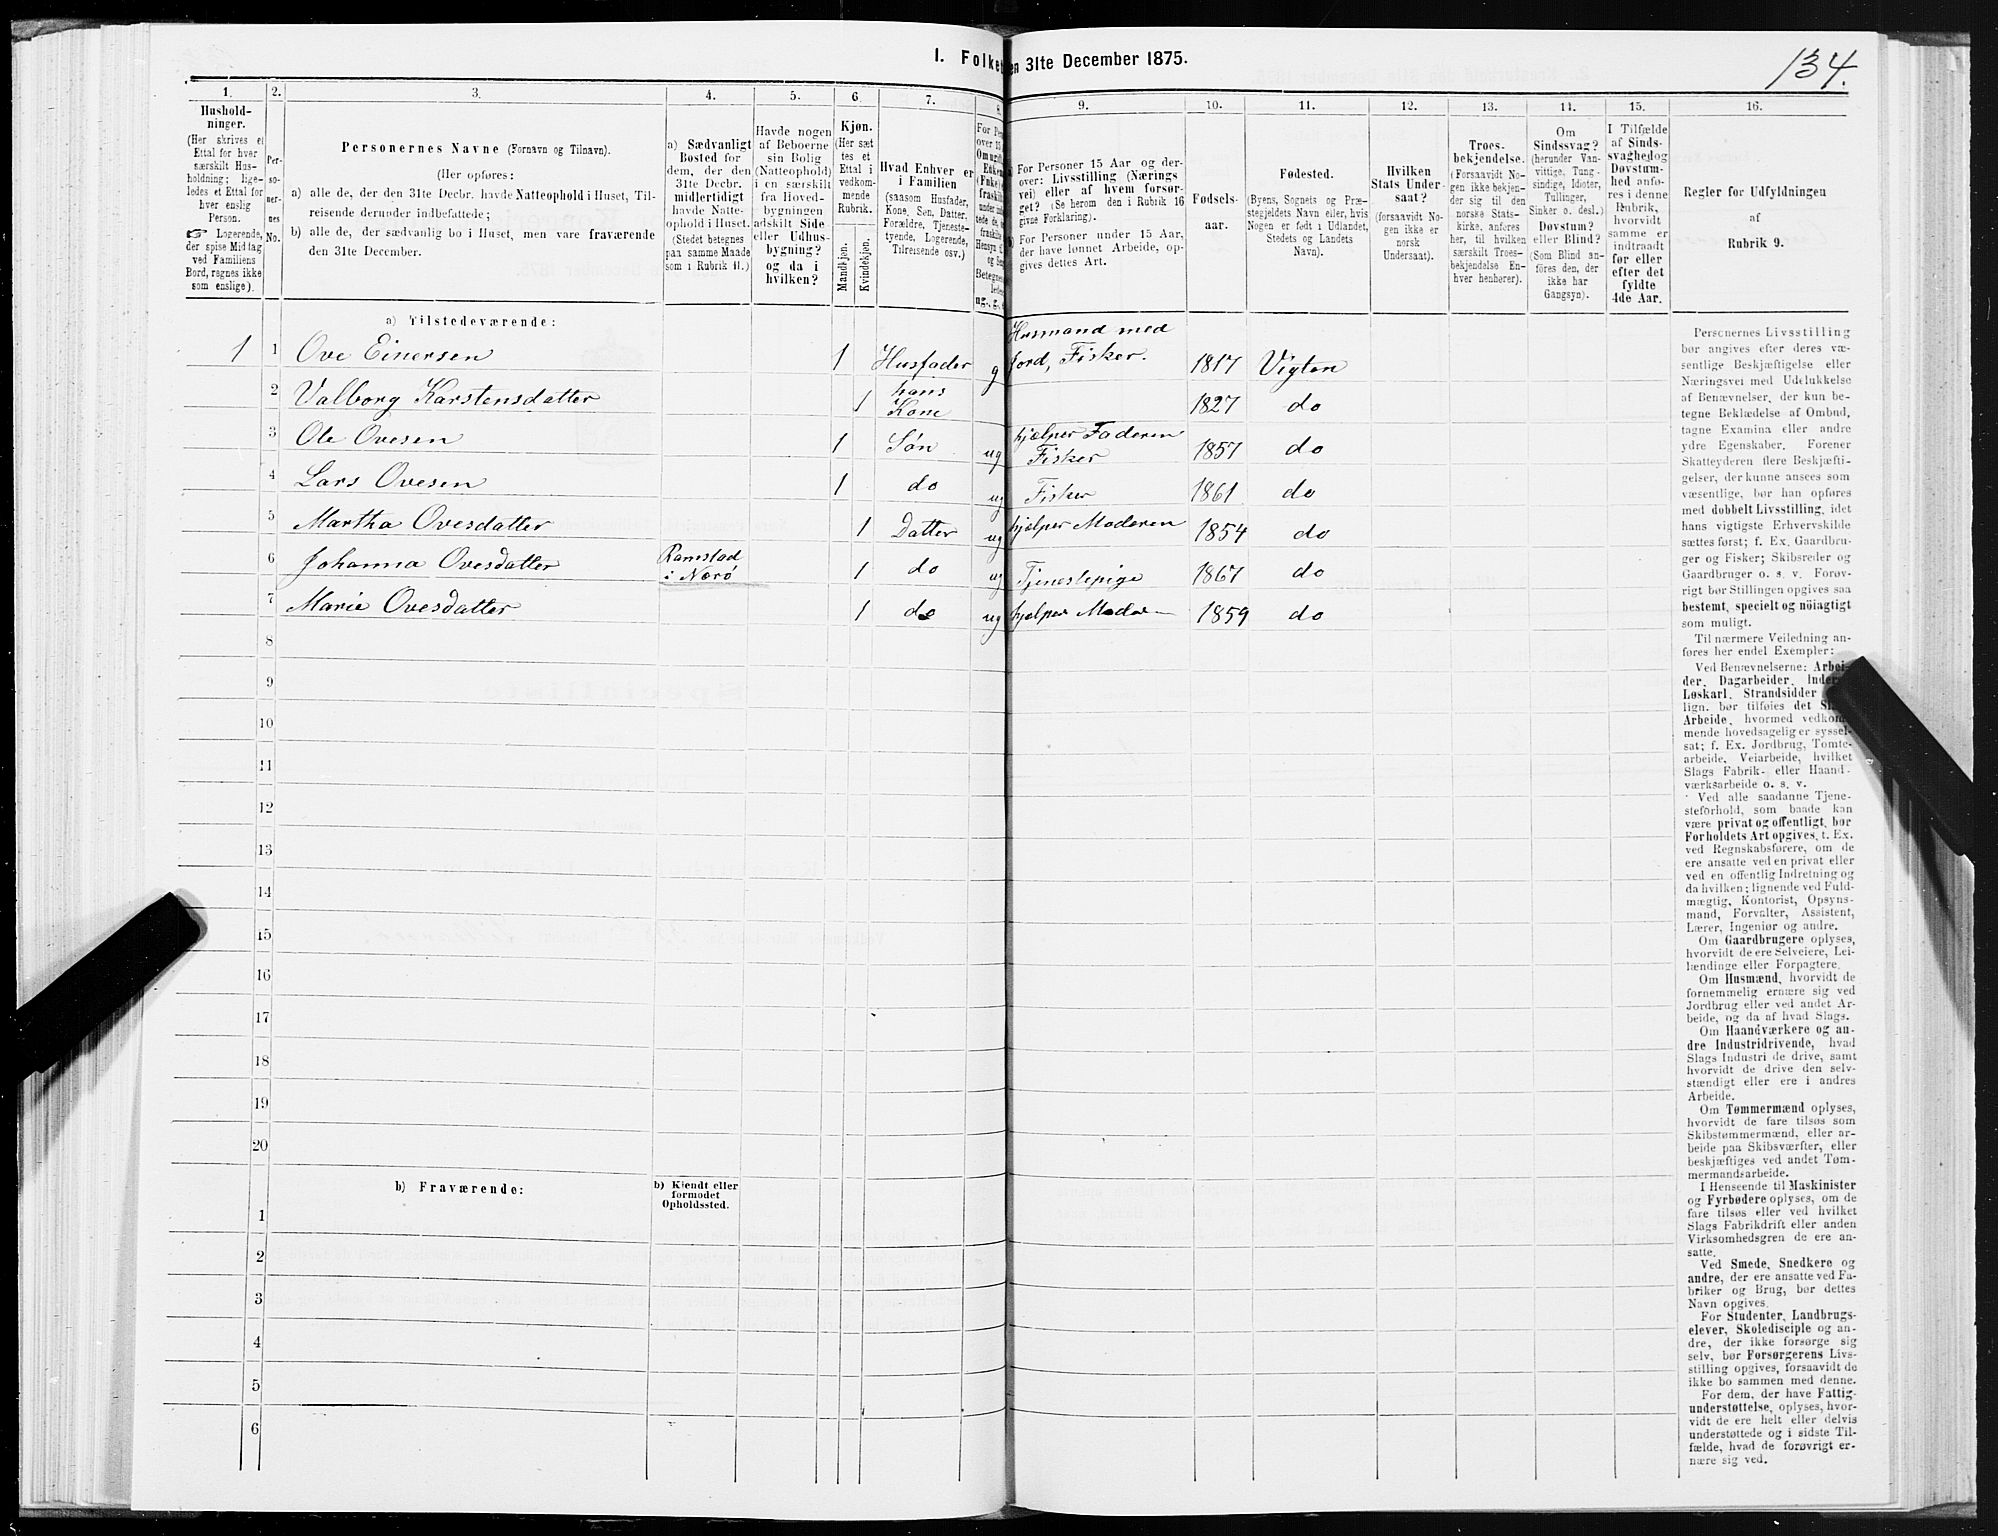 I. Folke
en 31te December 1875.
134.
1.
2.
3.
4.
5.
6
7.
8.
9.
10.
11.
12.
13.
14.
15.
16.
Hushold-
ninger.
(Her skrives et
Ettal for hver
særskilt Hus-
holdning; lige-
ledes et Ettal for
hver enslig
Person.
Logerende,
der spise Middag
ved Familiens
Bord, regnes ikke
som enslige).
Per-
so-
ner-
nes
No.
Personernes Navne (Fornavn og Tilnavn).
(Her opføres:
a) alle de, der den 31te Decbr. havde Natteophold i Huset, Til-
reisende derunder indbefattede;
b) alle de, der sædvanlig bo i Huset, men vare fraværende
den 31te December.
a) Sædvanligt
Bosted for
dem, der den
31te Decbr.
midlertidigt
havde Natte-
ophold i Huset.
(Stedet betegnes
paa samme Maade
som i Rubrik 11.)
Havde nogen
af Beboerne
sin Bolig
(Natteophold)
i en særskilt
fra Hoved-
bygningen
adskilt Side
eller Udhus-
bygning?
og da i
hvilken?
Kjøn.
(Her sæt
tes et
Ettal i
vedkom-
mende
Rubrik.
Mandkjøn.
Kvindekjøn.
Hvad Enhver er
i Familien
(saasom Husfader,
Kone, Søn, Datter,
Forældre, Tjeneste-
tyende, Logerende,
Tilreisende osv.)
For Per
over 15
Omugift
Enkem
(Enke)
fraskilt
ug., g., e
For Personer 15 Aar og der-
over: Livsstilling (Nærings
vei) eller af hvem forsør-
get? (Se herom den i Rubrik 16
givne Forklaring).
For Personer under 15 Aar,
der have lønnet Arbeide, op-
gives dettes Art.
Fødsels-
aar.
Fødested.
(Byens, Sognets og Præ-
stegjeldets Navn eller, hvis
Nogen er født i Udlandet,
Stedets og Landets
Navn).
Hvilken
Stats Under-
saat?
(forsaavidt No-
gen ikke er
norsk
Undersaat).
Troes-
bekjendelse.
(Forsaavidt No-
gen ikke bekjen-
der sig til den
norske Stats-
kirke, anføres
her, til hvilken
særskilt Troes-
bekjendelse En-
hver henhører).
Om
Sindssvag?
(herunder Van-
vittige, Tung-
sindige, Idioter,
Tullinger,
Sinker o. desl.)
Døvstum?
eller Blind?
(Som Blind an-
føres den, der
ikke har
Gangsyn).
I Tilfælde
af Sinds-
svaghedog
Døvstum-
hed anfø-
res i denne
Rubrik,
hvorvidt
samme er
indtraadt
før eller
efter det
fyldte
4de Aar.
Regler for Udfyldningen
af
Rubrik 9.
a) Tilstedeværende:
1 1 Ove Einersen 1 Husfader g Husmand med
Jord, Fisker. 1817 Vigten
2 Valborg Karstensdatter 1 hans
Kone 1827 do
3 Ole Ovesen 1 Søn ug hjælper Faderen
Fisker 1857 do
4 Lars Ovesen 1 do ug Fisker 1861 do
5 Martha Ovesdatter 1 Datter ug hjelper Moderen 1854 do
6 Johanna Ovesdatter Ramstad
i Nærö 1 do ug Tjenestepige 1867 do
7 Marie Ovesdatter 1 do ug hjelper Moder 1859 do
8
9
10
11
12
13
14
15
16
17
18
19
20
b) Fraværende:
b) Kjendt eller
formodet
Opholdssted.
1
2
3
4
5
6
Personernes Livsstilling
bør angives efter deres væ-
sentlige Beskjæftigelse eller
Næringsvei med Udelukkelse
af Benævnelser, der kun be-
tegne Beklædelse af Ombud,
tagne Examina eller andre
ydre Egenskaber. Forener
Skatteyderen flere Beskjæfti-
gelser, der kunne ansees som
væsentlige, bør han opføres
med dobbelt Livsstilling, idet
hans vigtigste Erhvervskilde
sættes først; f. Ex. Gaardbru-
ger og Fisker; Skibsreder og
Gaardbruger o. s. v. Forøv-
rigt bør Stillingen opgives saa
bestemt, specielt og nöiagtigt
som muligt.
Til nærmere Veiledning an-
føres her endel Exempler:
Ved Benævnelserne: Arbei-
der, Dagarbeider, Inder
Løskarl, Strandsidder
lign. bør tilføies det Sl
Arbeide, hvormed vedkom-
mende hovedsagelig er syssel-
sat; f. Ex. Jordbrug, Tomte-
arbeide, Veiarbeide, hvilket
Slags Fabrik- eller Haand-
værksarbeide o. s. v.
Ved alle saadanne Tjene-
steforhold, som baade kan
være privat og offentligt, bør
Forholdets Art opgives, t. Ex.
ved Regnskabsførere, om de
ere ansatte ved en privat eller
ved en offentlig Indretning og
da hvilken; lignende ved Fuld-
mægtig, Kontorist, Opsyns-
mand, Forvalter, Assistent,
Lærer, Ingeniør og andre.
Om Gaardbrugere oplyses,
hvorvidt de ere Selveiere, Lei-
lændinge eller Forpagtere.
Om Husmænd, hvorvidt de
fornemmelig ernære sig ved
Jordbrug eller ved andet Ar-
beide, og da af hvad Slags.
Om Haandværkere og an-
dre Industridrivende, hvad
Slags Industri de drive, samt
hvorvidt de drive den selv-
stændigt eller ere i andres
Arbeide.
Om Tømmermænd oplyses,
hvorvidt de fare tilsøs som
Skibstømmermænd, eller ar-
beide paa Skibsværfter, eller
beskjæftiges ved andet Tøm-
mermandsarbeide.
I Henseende til Maskinister
og Fyrbødere oplyses, om de
fare tilsøs eller ved hvilket
Slags Fabrikdrift eller anden
Virksomhedsgren de ere an-
satte.
Ved Smede, Snedkere og
andre, der ere ansatte ved Fa-
briker og Brug, bør dettes
Navn opgives.
For Studenter, Landbrugs-
elever, Skoledisciple og an-
dre, der ikke forsørge sig
selv, bør Forsørgerens Livs-
stilling opgives, forsaavidt de
ikke bo sammen med denne.
For dem, der have Fattig-
understøttelse, oplyses, hvor-
vidt de ere helt eller delvis
understøttede og i sidste Til-
fælde, hvad de forøvrigt er-
nære sig ved.